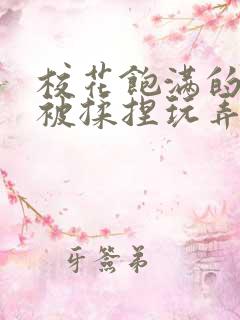 校花飽满的
被揉捏玩弄
牙签弟